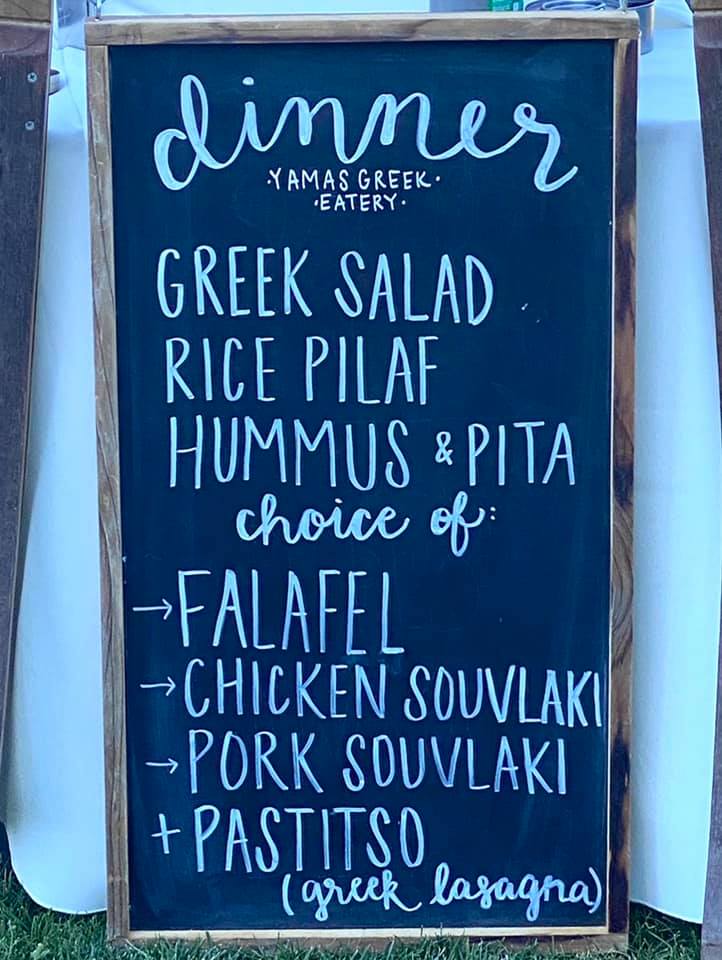 dinner
·YAMAS GREEK·
·EATERY·
GREEK SALAD
RICE PILAF
HUMMUS & PITA
choice of:
→FALAFEL
→CHICKEN SOUVLAKI
→PORK SOUVLAKI
+ PASTITSO
(greek lasagna)